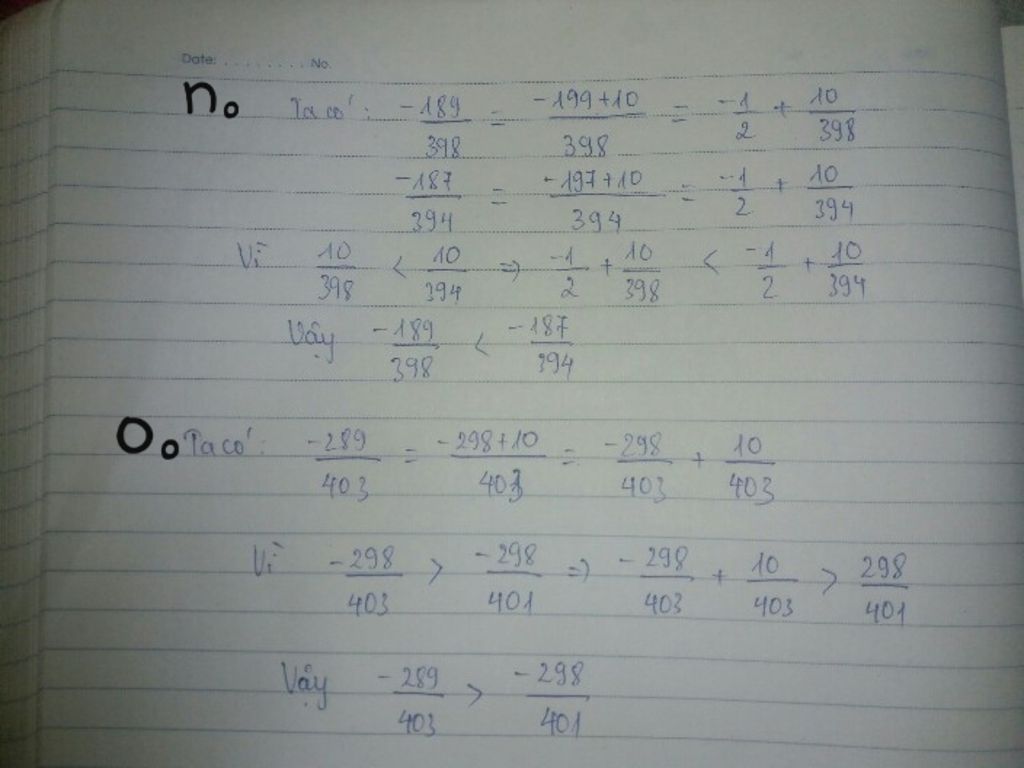 Date: ........ No.
n. Ta có: -189/398 = -199+10/398 = -1/2 + 10/398
-187/394 = -197+10/394 = -1/2 + 10/394
Vì 10/398 < 10/394 => -1/2 + 10/398 < -1/2 + 10/394
Vậy -189/398 < -187/394
o. Ta có: -289/403 = -298+10/403 = -298/403 + 10/403
Vì -298/403 > -298/401 => -298/403 + 10/403 > 298/401
Vậy -289/403 > -298/401